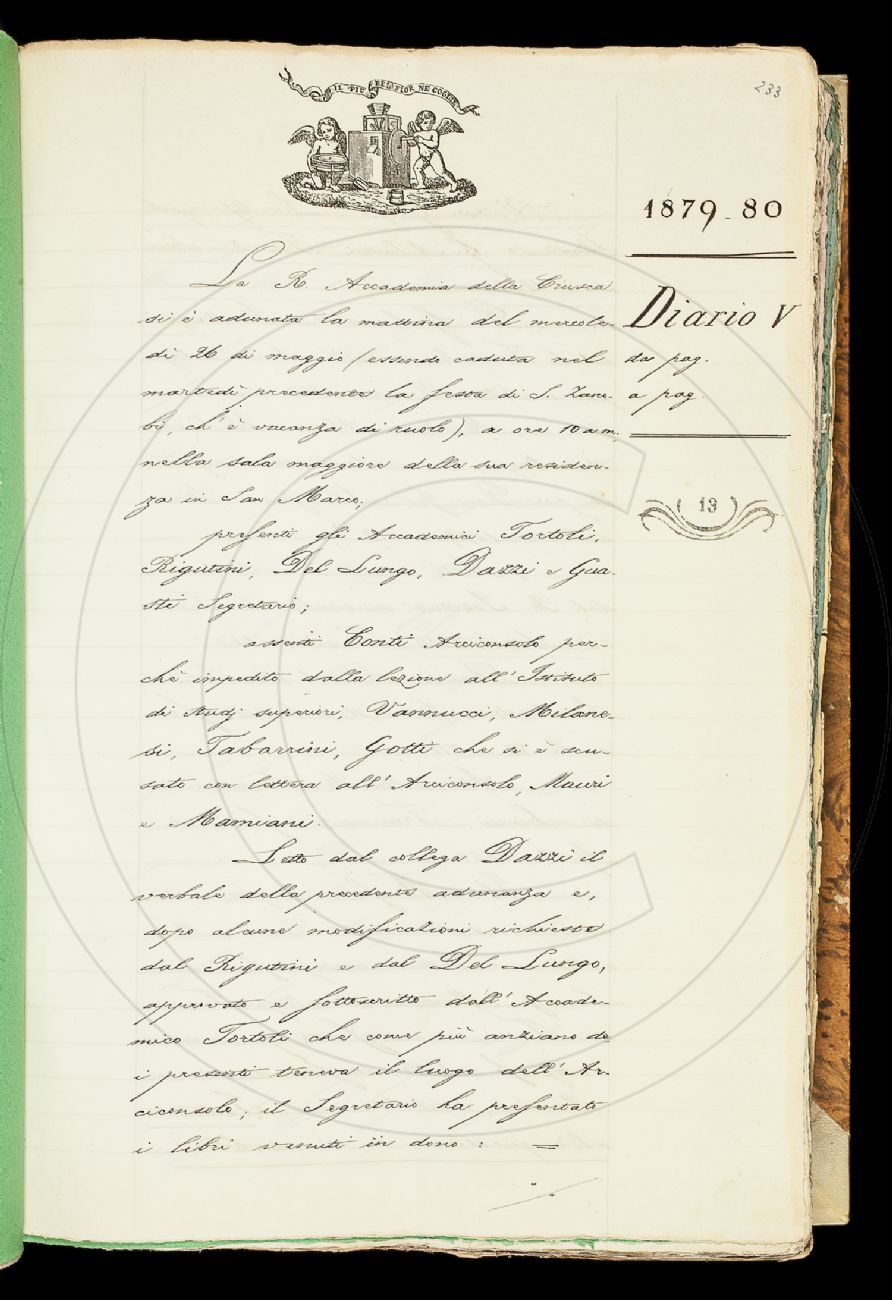 IL PIÙ BEL FIOR NE COGLIE
233
1879-80
Diario V
da pag.
a pag.
13
La R. Accademia della Crusca
si è adunata la mattina del mercole-
dì 26 di maggio (essendo caduta nel
martedì precedente la festa di S. Zano-
bi, ch'è vacanza di ruolo), a ore 10 a m.,
nella sala maggiore della sua residen-
za in San Marco;
presenti gli Accademici Tortoli,
Rigutini, Del Lungo, Dazzi e Gua-
sti Segretario;
assenti Conti Arciconsolo per-
chè impedito dalla lezione all'Istituto
di studj superiori, Vannucci, Milane-
si, Tabarrini, Gotti che si è scu-
sato con lettera all'Arciconsolo, Mauri
e Mamiani.
Letto dal collega Dazzi il
verbale della precedente adunanza e,
dopo alcune modificazioni richieste
dal Rigutini e dal Del Lungo,
approvato e sottoscritto dall'Accade-
mico Tortoli che come più anziano de
i presenti teneva il luogo dell'Ar-
ciconsolo; il Segretario ha presentato
i libri venuti in dono: =